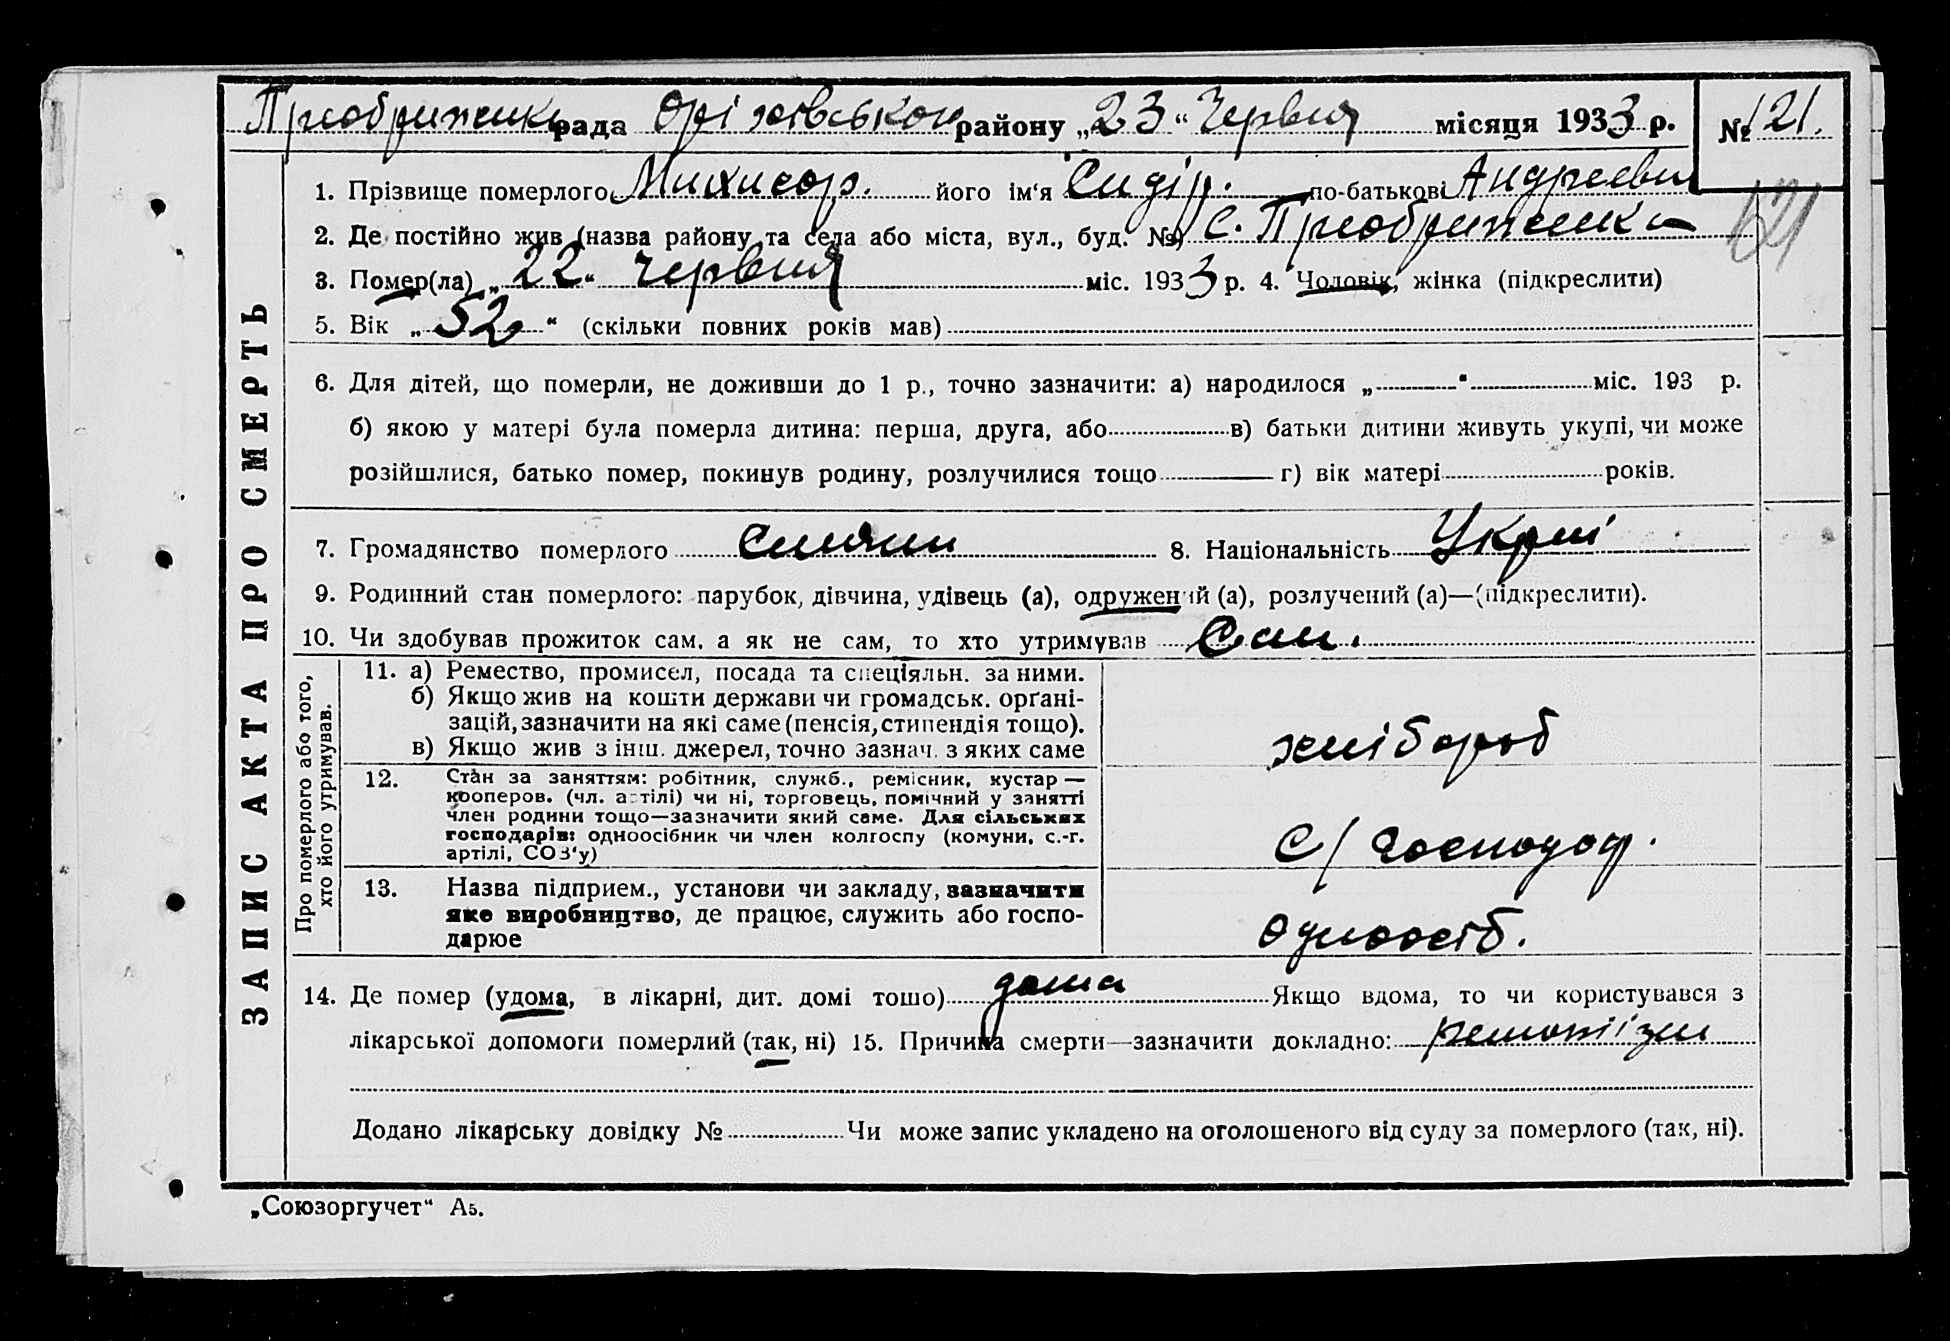 Преображенка рада Оріхівського району „23“ Червня місяця 1933 р. № 121.
1. Прізвище померлого його ім'я Сидір. по-батькові Андреевич
121
2. Де постійно жив (назва району та села або міста, вул., буд. №) с. Преображенка
3. Помер(ла) „22“ червня міс. 1933 р. 4. Чоловік, жінка (підкреслити)
5. Вік „52“ (скільки повних років мав)
6. Для дітей, що померли, не доживши до 1 р., точно зазначити: а) народилося „ “ міс. 193 р.
б) якою у матері була померла дитина: перша, друга, або в) батьки дитини живуть укупі, чи може
розійшлися, батько помер, покинув родину, розлучилися тощо г) вік матері років.
7. Громадянство померлого 8. Національність Украї
9. Родинний стан померлого: парубок, дівчина, удівець (а), одружений (а), розлучений (а)—(підкреслити).
10. Чи здобував прожиток сам, а як не сам, то хто утримував Сам.
ЗАПИС АКТА ПРО СМЕРТЬ
Про померлого або того,
хто його утримував.
11. а) Ремество, промисел, посада та спеціяльн. за ними.
б) Якщо жив на кошти держави чи громадськ. орґані-
зацій, зазначити на які саме (пенсія, стипендія тощо).
в) Якщо жив з інш. джерел, точно зазнач. з яких саме
хлібороб
12. Стан за заняттям: робітник, служб., ремісник, кустар —
кооперов. (чл. артілі) чи ні, торговець, помічний у занятті
член родини тощо—зазначити який саме. Для сільських
господарів: одноосібник чи член колгоспу (комуни, с.-г.
артілі, СОЗ'у)
С/господар.
13. Назва підприєм., установи чи закладу, зазначити
яке виробництво, де працює, служить або госпо-
дарює
Одноосіб.
14. Де помер (удома, в лікарні, дит. домі тощо) дома Якщо вдома, то чи користувався з
лікарської допомоги померлий (так, ні) 15. Причина смерти—зазначити докладно: ремотізм
Додано лікарську довідку № Чи може запис укладено на оголошеного від суду за померлого (так, ні).
„Союзоргучет“ А5.